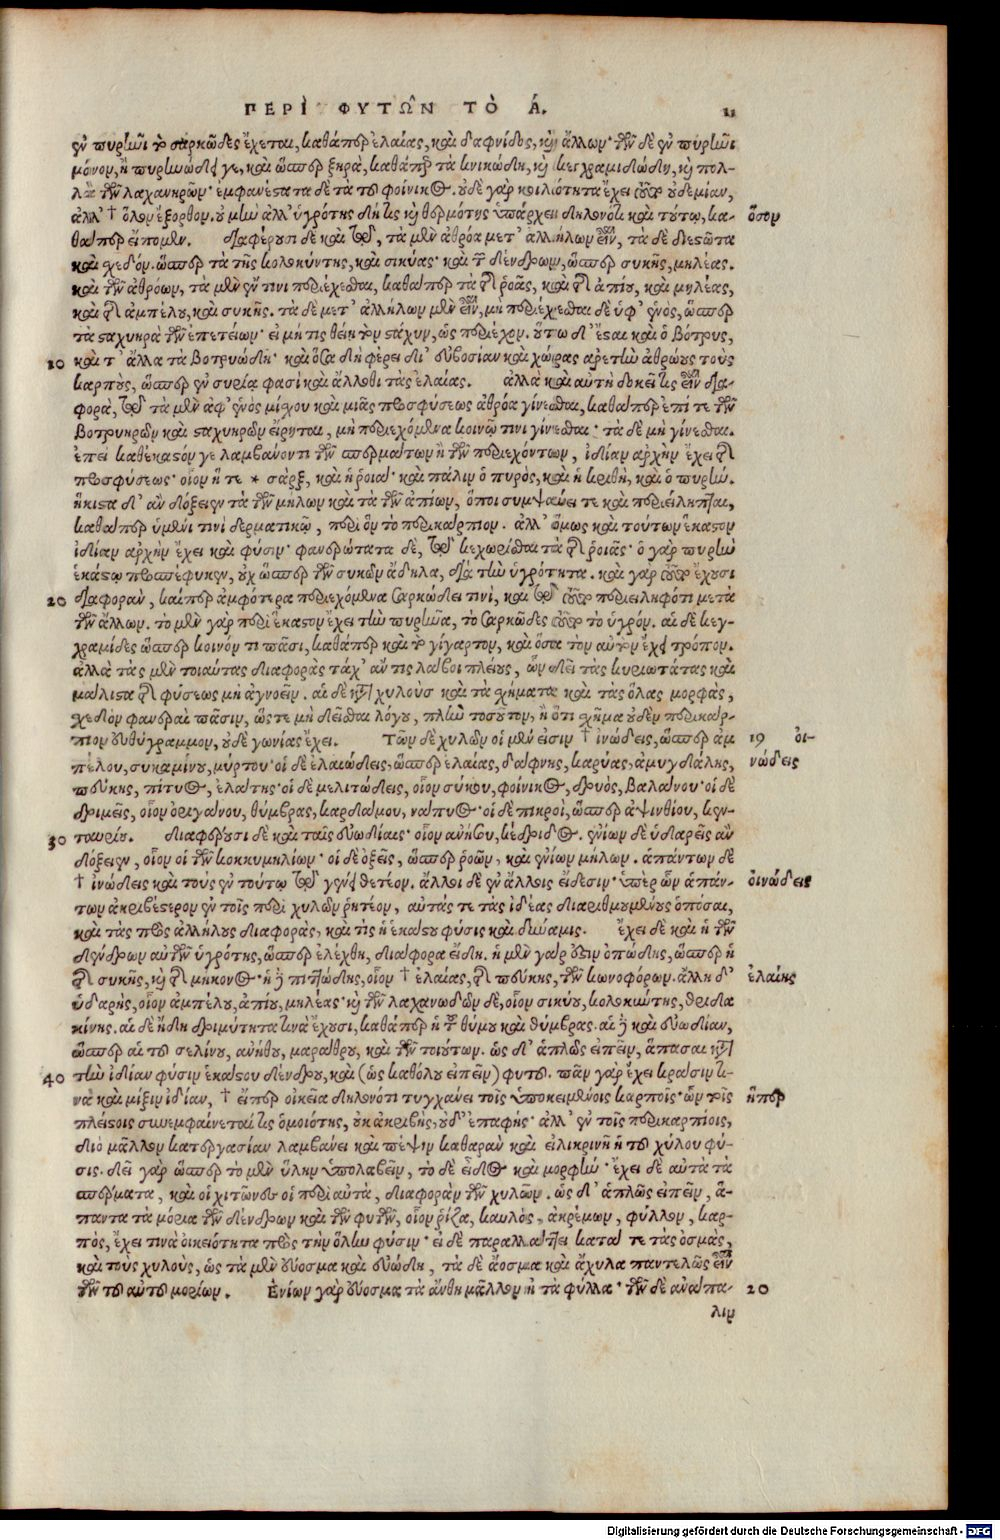 ΠΕΡΙ ΦΥΤΩ͂Ν ΤΟ Ά. 11
ἐν πυρῆνι τὸ σαρκῶδες ἔχεται, καθάπερ ἐλαίας, καὶ δαφνίδος, καὶ ἄλλων· τῶν δὲ ἐν πυρῆνι
μόνον, ἢ πυρηνώδει γε, καὶ ὥσπερ ξηρὰ, καθάπερ τὰ κνικώδη, καὶ κεγχραμιδώδη, καὶ πολ-
λὰ τῶν λαχανηρῶν· ἐμφανέστατα δὲ τὰ τοῦ φοίνικος. οὐδὲ γὰρ κοιλότητα ἔχει τοῦτο οὐδεμίαν,
ἀλλ' † ὅλον ἔξορθον. οὐ μὴν ἀλλ' ὑγρότης δή τις καὶ θερμότης ὑπάρχει δηλονότι καὶ τούτῳ, κα- ὅσον
θάπερ εἴπομεν. Διαφέρουσι δὲ καὶ τῷ, τὰ μὲν ἀθρόα μετ' ἀλλήλων εἶναι, τὰ δὲ διεστῶτα
καὶ σχεδόν. ὥσπερ τὰ τῆς κολοκύντης, καὶ σικύας· καὶ τῶν δένδρων, ὥσπερ συκῆς, μηλέας.
καὶ τῶν ἀθρόων, τὰ μὲν ἔν τινι περιέχεσθαι, καθάπερ τὰ τῆς ῥοᾶς, καὶ τῆς ἀπίου, καὶ μηλέας,
καὶ τῆς ἀμπέλου, καὶ συκῆς. τὰ δὲ μετ' ἀλλήλων μὲν εἶναι, μὴ περιέχεσθαι δὲ ὑφ' ἑνὸς, ὥσπερ
τὰ σταχυηρὰ τῶν ἐπετείων· εἰ μή τις θείη τὸν στάχυν, ὡς περιέχον. οὕτω δ' ἔσται καὶ ὁ βότρυς,
10 καὶ τ' ἄλλα τὰ βοτρυώδη· καὶ ὅσα δὴ φέρει δι' εὐβοσίαν καὶ χώρας ἀρετὴν ἀθρόους τοὺς
καρποὺς, ὥσπερ ἐν συρίᾳ φασὶ καὶ ἄλλοθι τὰς ἐλαίας. ἀλλὰ καὶ αὕτη δοκεῖ τις εἶναι δια-
φορὰ, τῷ τὰ μὲν ἀφ' ἑνὸς μίσχου καὶ μιᾶς προσφύσεως ἀθρόα γίνεσθαι, καθάπερ ἐπί τε τῶν
βοτρυηρῶν καὶ σταχυηρῶν εἴρηται, μὴ περιεχόμενα κοινῷ τινι γίνεσθαι· τὰ δὲ μὴ γίνεσθαι.
ἐπεὶ καθέκαστόν γε λαμβάνοντι τῶν σπερμάτων ἢ τῶν περιεχόντων, ἰδίαν ἀρχὴν ἔχει τῆς
προσφύσεως· οἷον ἥ τε * σὰρξ, καὶ ἡ ῥοιά· καὶ πάλιν ὁ πυρὸς, καὶ ἡ κριθὴ, καὶ ὁ πυρήν.
ἥκιστα δ' ἂν δόξειεν τὰ τῶν μήλων καὶ τὰ τῶν ἀπίων, ὅποι συμψαύει τε καὶ περιείληπται,
καθάπερ ὑμένι τινὶ δερματικῷ, περὶ ὃν τὸ περικάρπιον. ἀλλ' ὅμως καὶ τούτων ἕκαστον
ἰδίαν ἀρχὴν ἔχει καὶ φύσιν· φανερώτατα δὲ, τῷ κεχωρίσθαι τὰ τῆς ῥοιᾶς· ὁ γὰρ πυρὴν
ἑκάστῳ προσπέφυκεν, οὐχ ὥσπερ τῶν συκῶν ἄδηλα, διὰ τὴν ὑγρότητα. καὶ γὰρ τοῦτο ἔχουσι
20 διαφορὰν, καίπερ ἀμφότερα περιεχόμενα σαρκώδει τινὶ, καὶ τῷ τοῦτο περιειληφότι μετὰ
τῶν ἄλλων. τὸ μὲν γὰρ περὶ ἕκαστον ἔχει τὴν πυρῆνα, τὸ σαρκῶδες τοῦτο τὸ ὑγρόν. αἱ δὲ κεγ-
χραμίδες ὥσπερ κοινόν τι πᾶσι, καθάπερ καὶ τὸ γίγαρτον, καὶ ὅσα τὸν αὐτὸν ἔχει τρόπον.
ἀλλὰ τὰς μὲν τοιαύτας διαφορὰς τάχ' ἄν τις λάβοι πλείους, ὧν δεῖ τὰς κυριωτάτας καὶ
μάλιστα τῆς φύσεως μὴ ἀγνοεῖν. αἱ δὲ κατὰ χυλοὺς καὶ τὰ σχήματα καὶ τὰς ὅλας μορφὰς,
σχεδὸν φανεραὶ πᾶσιν, ὥςτε μὴ δεῖσθαι λόγου, πλὴν τοσοῦτον, ἢ ὅτι σχῆμα οὐδὲν περικάρ-
πιον εὐθύγραμμον, οὐδὲ γωνίας ἔχει. Τῶν δὲ χυλῶν οἱ μέν εἰσιν † ἰνώδεις, ὥσπερ ἀμ 19 οἰ-
πέλου, συκαμίνου, μύρτου· οἱ δὲ ἐλαιώδεις, ὥσπερ ἐλαίας, δάφνης, καρύας, ἀμυγδάλης, νώδεις
πεύκης, πίτυος, ἐλάτης· οἱ δὲ μελιτώδεις, οἷον σύκου, φοίνικος, δρυὸς, βαλάνου· οἱ δὲ
δριμεῖς, οἷον ὀριγάνου, θύμβρας, καρδάμου, νάπυος· οἱ δὲ πικροὶ, ὥσπερ ἀψινθίου, κεν-
30 ταυρίου. διαφέρουσι δὲ καὶ ταῖς εὐωδίαις· οἷον ἀνήσου, κέδριδος. ἐνίων δὲ ὑδαρεῖς ἂν
δόξειεν, οἷον οἱ τῶν κοκκυμηλίων· οἱ δὲ ὀξεῖς, ὥσπερ ῥοῶν, καὶ ἐνίων μήλων. ἁπάντων δὲ
† ἰνώδεις καὶ τοὺς ἐν τούτῳ τῷ γένει θετέον. ἄλλοι δὲ ἐν ἄλλοις εἴδεσιν· ὑπὲρ ὧν ἁπάν- οἰνώδεις
των ἀκριβέστερον ἐν τοῖς περὶ χυλῶν ῥητέον, αὐτάς τε τὰς ἰδέας διαριθμουμένους ὁπόσαι,
καὶ τὰς πρὸς ἀλλήλους διαφορὰς, καὶ τίς ἡ ἑκάστου φύσις καὶ δύναμις. ἔχει δὲ καὶ ἡ τῶν
δένδρων αὐτῶν ὑγρότης, ὥσπερ ἐλέχθη, διάφορα εἴδη. ἡ μὲν γάρ ἐστιν ὀπώδης, ὥσπερ ἡ
τῆς συκῆς, καὶ τῆς μήκωνος· ἡ δὲ πιττώδης, οἷον † ἐλαίας, τῆς πεύκης, τῶν κωνοφόρων. ἄλλη δ' ἐλαίης
ὑδαρὴς, οἷον ἀμπέλου, ἀπίου, μηλέας· καὶ τῶν λαχανωδῶν δὲ, οἷον σικύου, κολοκύντης, θριδα
κίνης. αἱ δὲ ἤδη δριμύτητα τινὰ ἔχουσι, καθάπερ ἡ τοῦ θύμου καὶ θύμβρας. αἱ δὲ καὶ εὐωδίαν,
ὥσπερ αἱ τοῦ σελίνου, ἀνήθου, μαράθρου, καὶ τῶν τοιούτων. ὡς δ' ἁπλῶς εἰπεῖν, ἅπασαι κατὰ
40 τὴν ἰδίαν φύσιν ἑκάστου δένδρου, καὶ (ὡς καθόλου εἰπεῖν) φυτοῦ. πᾶν γὰρ ἔχει κρᾶσιν τι-
νὰ καὶ μίξιν ἰδίαν, † εἴπερ οἰκεία δηλονότι τυγχάνει τοῖς ὑποκειμένοις καρποῖς· ὧν τοῖς ἥπερ
πλείστοις συνεμφαίνεταί τις ὁμοιότης, οὐκ ἀκριβὴς, οὐδ' ἐπαφής· ἀλλ' ἐν τοῖς περικαρπίοις,
διὸ μᾶλλον κατεργασίαν λαμβάνει καὶ πέψιν καθαρὰν καὶ εἰλικρινῆ ἡ τοῦ χύλου φύ-
σις. δεῖ γὰρ ὥσπερ τὸ μὲν ὕλην ὑπολαβεῖν, τὸ δὲ εἶδος καὶ μορφήν· ἔχει δὲ αὐτὰ τὰ
σπέρματα, καὶ οἱ χιτῶνες οἱ περὶ αὐτὰ, διαφορὰν τῶν χυλῶν. ὡς δ' ἁπλῶς εἰπεῖν, ἅ-
παντα τὰ μόρια τῶν δένδρων καὶ τῶν φυτῶν, οἷον ῥίζα, καυλὸς, ἀκρέμων, φύλλον, καρ-
πὸς, ἔχει τινὰ οἰκειότητα πρὸς τὴν ὅλην φύσιν· εἰ δὲ παραλλάττει κατά τε τὰς ὀσμὰς,
καὶ τοὺς χυλοὺς, ὡς τὰ μὲν εὔοσμα καὶ εὐώδη, τὰ δὲ ἄοσμα καὶ ἄχυλα παντελῶς εἶναι
τῶν τοῦ αὐτοῦ μορίων. Ἐνίων γὰρ εὔοσμα τὰ ἄνθη μᾶλλον ἢ τὰ φύλλα· τῶν δὲ ἀνάπα- 20
λιν
Digitalisierung gefördert durch die Deutsche Forschungsgemeinschaft - DFG